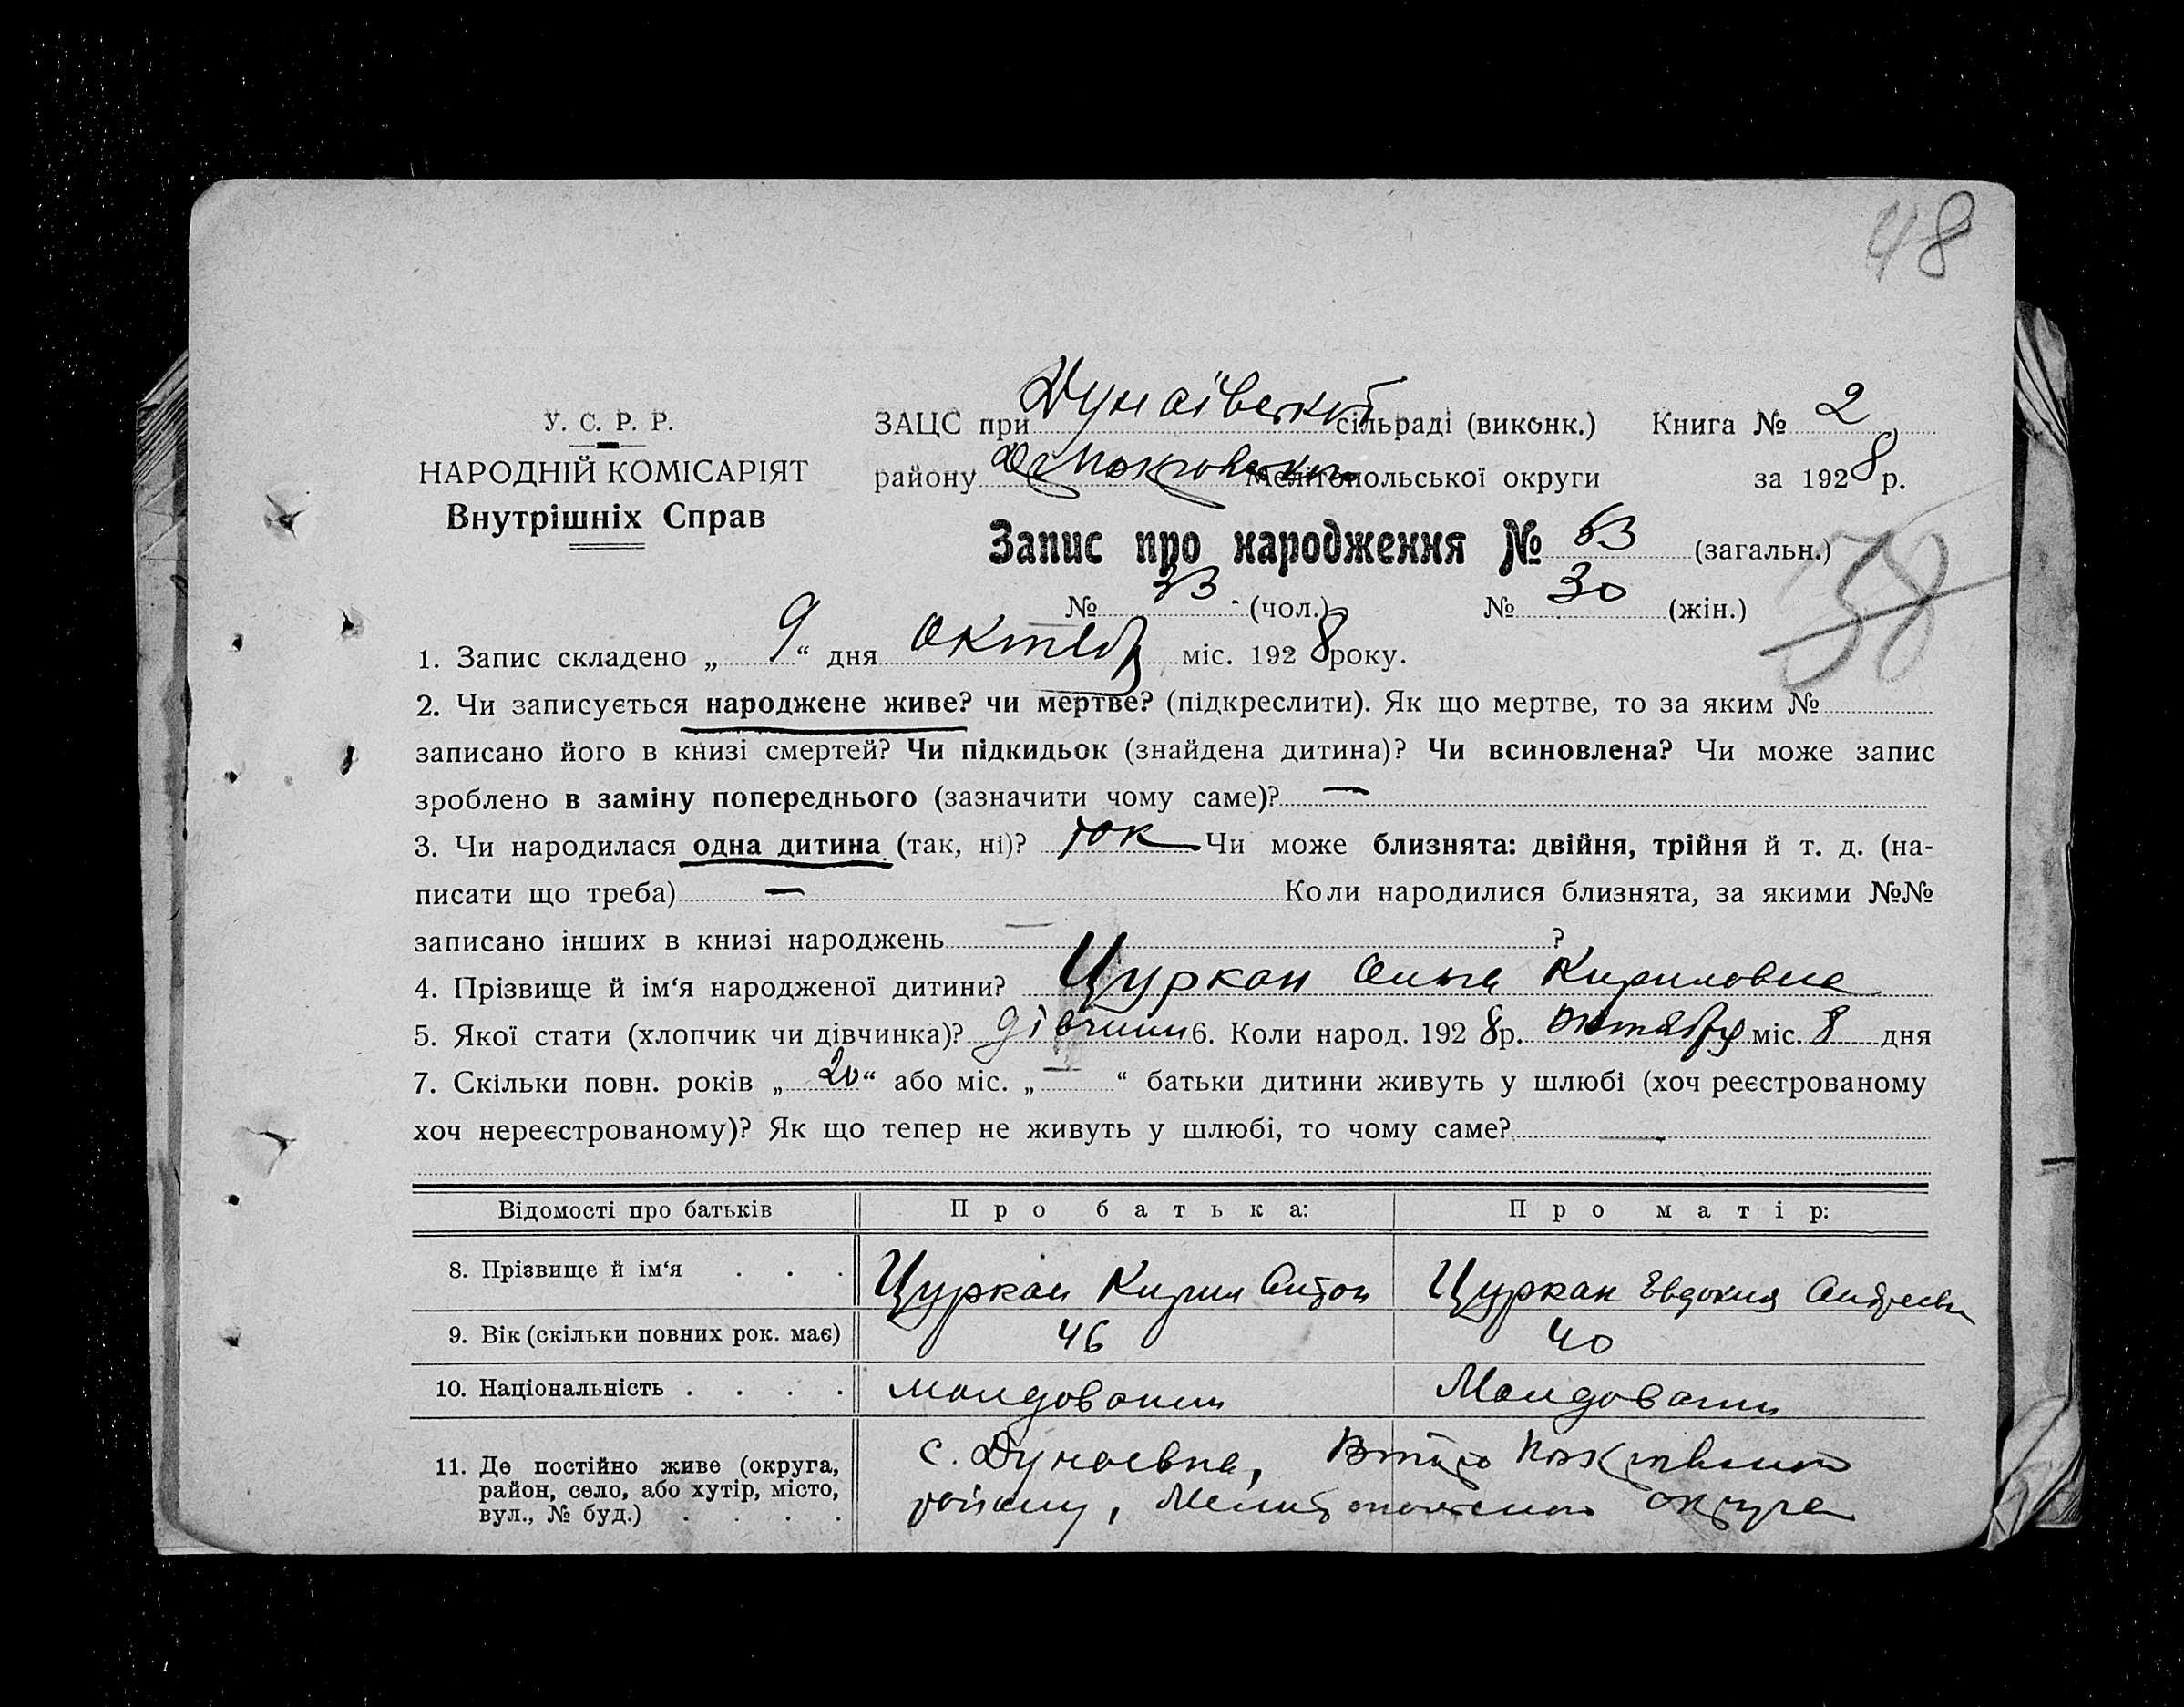 48
У. С. Р. Р.
НАРОДНІЙ КОМІСАРІЯТ
Внутрішніх Справ
ЗАЦС при Дунаївській сільраді (виконк.) Книга № 2
району Мелітопольської округи за 1928 р.
Запис про народження № 63 (загальн.)
58
№ 33 (чол.) № 30 (жін.)
1. Запис складено „ 9 “ дня октяб міс. 1928 року.
2. Чи записується народжене живе? чи мертве? (підкреслити). Як що мертве, то за яким №
записано його в книзі смертей? Чи підкидьок (знайдена дитина)? Чи всиновлена? Чи може запис
зроблено в заміну попереднього (зазначити чому саме)? —
3. Чи народилася одна дитина (так, ні)? так Чи може близнята: двійня, трійня й т. д. (на-
писати що треба) — Коли народилися близнята, за якими №№
записано інших в книзі народжень — ?
4. Прізвище й ім‘я народженої дитини? Цуркан Ольга Кириловна
5. Якої стати (хлопчик чи дівчинка)? дівчин 6. Коли народ. 1928 р. октября міс. 8 дня
7. Скільки повн. років „ 20 “ або міс. „ — “ батьки дитини живуть у шлюбі (хоч реєстрованому
хоч нереєстрованому)? Як що тепер не живуть у шлюбі, то чому саме? —
Відомості про батьків Про батька: Про матір:
8. Прізвище й ім‘я . . . Цуркан Кирил Антон Цуркан Евдокия Андреевн
9. Вік (скільки повних рок. має) 46 40
10. Національність . . . . молдован Молдован
11. Де постійно живе (округа, с. Дунаевка,
район, село, або хутір, місто, району, округа
вул., № буд.) . . . .